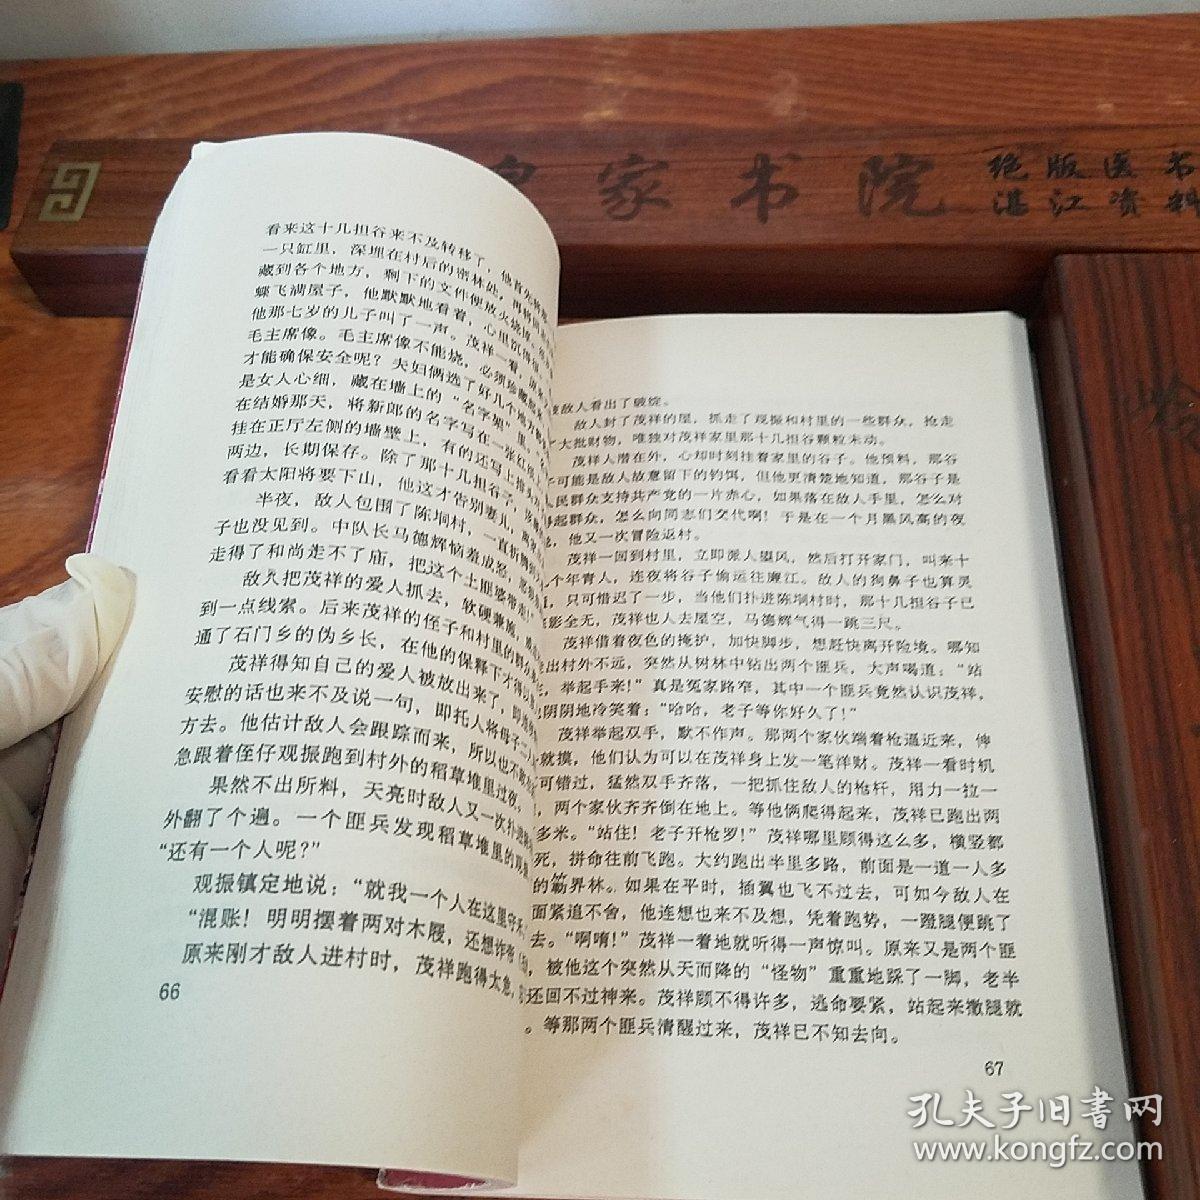 家书院
绝版医书
湛江资料
看来这十几担谷来不及转移了，他首先将
一只缸里，深埋在村后的密林处，再将
藏到各个地方，剩下的文件便放火烧掉。
蝶飞满屋子，他默默地看着，心里沉得很
他那七岁的儿子叫了一声。茂祥一看，
毛主席像。毛主席像不能烧，必须珍藏
才能确保安全呢？夫妇俩选了好几个地方都
是女人心细，藏在墙上的“名字架”里。
在结婚那天，将新郎的名字写在一张红纸上
挂在正厅左侧的墙壁上，有的还写上
两边，长期保存。除了那十几担谷子，
看看太阳将要下山，他这才告别妻儿，
半夜，敌人包围了陈垌村，一直折腾到
子也没见到。中队长马德辉恼羞成怒，
走得了和尚走不了庙，把这个土匪婆带走！”
敌人把茂祥的爱人抓去，软硬兼施，
到一点线索。后来茂祥的侄子和村里的群众
通了石门乡的伪乡长，在他的保释下才得以
茂祥得知自己的爱人被放出来了，即
安慰的话也来不及说一句，即托人将母子二人
方去。他估计敌人会跟踪而来，所以也不敢
急跟着侄仔观振跑到村外的稻草堆里过夜。
果然不出所料，天亮时敌人又一次扑进
外翻了个遍。一个匪兵发现稻草堆里的观振
“还有一个人呢？”
观振镇定地说：“就我一个人在这里守禾
“混账！明明摆着两对木屐，还想诈
原来刚才敌人进村时，茂祥跑得太急，
66
敌人看出了破绽。
敌人封了茂祥的屋，抓走了观振和村里的一些群众，抢走
大批财物，唯独对茂祥家里那十几担谷颗粒未动。
茂祥人潜在外，心却时刻挂着家里的谷子。他预料，那谷
可能是敌人故意留下的钓饵，但他更清楚地知道，那谷子是
民群众支持共产党的一片赤心，如果落在敌人手里，怎么对
起群众，怎么向同志们交代啊！于是在一个月黑风高的夜
，他又一次冒险返村。
茂祥一回到村里，立即派人望风，然后打开家门，叫来十
个年青人，连夜将谷子偷运往廉江。敌人的狗鼻子也算灵
，只可惜迟了一步，当他们扑进陈垌村时，那十几担谷子已
影全无，茂祥也人去屋空，马德辉气得一跳三尺。
茂祥借着夜色的掩护，加快脚步，想赶快离开险境。哪知
出村外不远，突然从树林中钻出两个匪兵，大声喝道：“站
，举起手来！”真是冤家路窄，其中一个匪兵竟然认识茂祥，
阴阴地冷笑着：“哈哈，老子等你好久了！”
茂祥举起双手，默不作声。那两个家伙端着枪逼近来，伸
就摸，他们认为可以在茂祥身上发一笔洋财。茂祥一看时机
可错过，猛然双手齐落，一把抓住敌人的枪杆，用力一拉一
，两个家伙齐齐倒在地上。等他俩爬得起来，茂祥已跑出两
多米。“站住！老子开枪罗！”茂祥哪里顾得这么多，横竖都
死，拼命往前飞跑。大约跑出半里多路，前面是一道一人多
的簕界林。如果在平时，插翼也飞不过去，可如今敌人在
面紧追不舍，他连想也来不及想，凭着跑势，一蹬腿便跳了
去。“啊唷！”茂祥一着地就听得一声惊叫。原来又是两个匪
，被他这个突然从天而降的“怪物”重重地踩了一脚，老半
还回不过神来。茂祥顾不得许多，逃命要紧，站起来撒腿就
。等那两个匪兵清醒过来，茂祥已不知去向。
67
孔夫子旧书网
www.kongfz.com